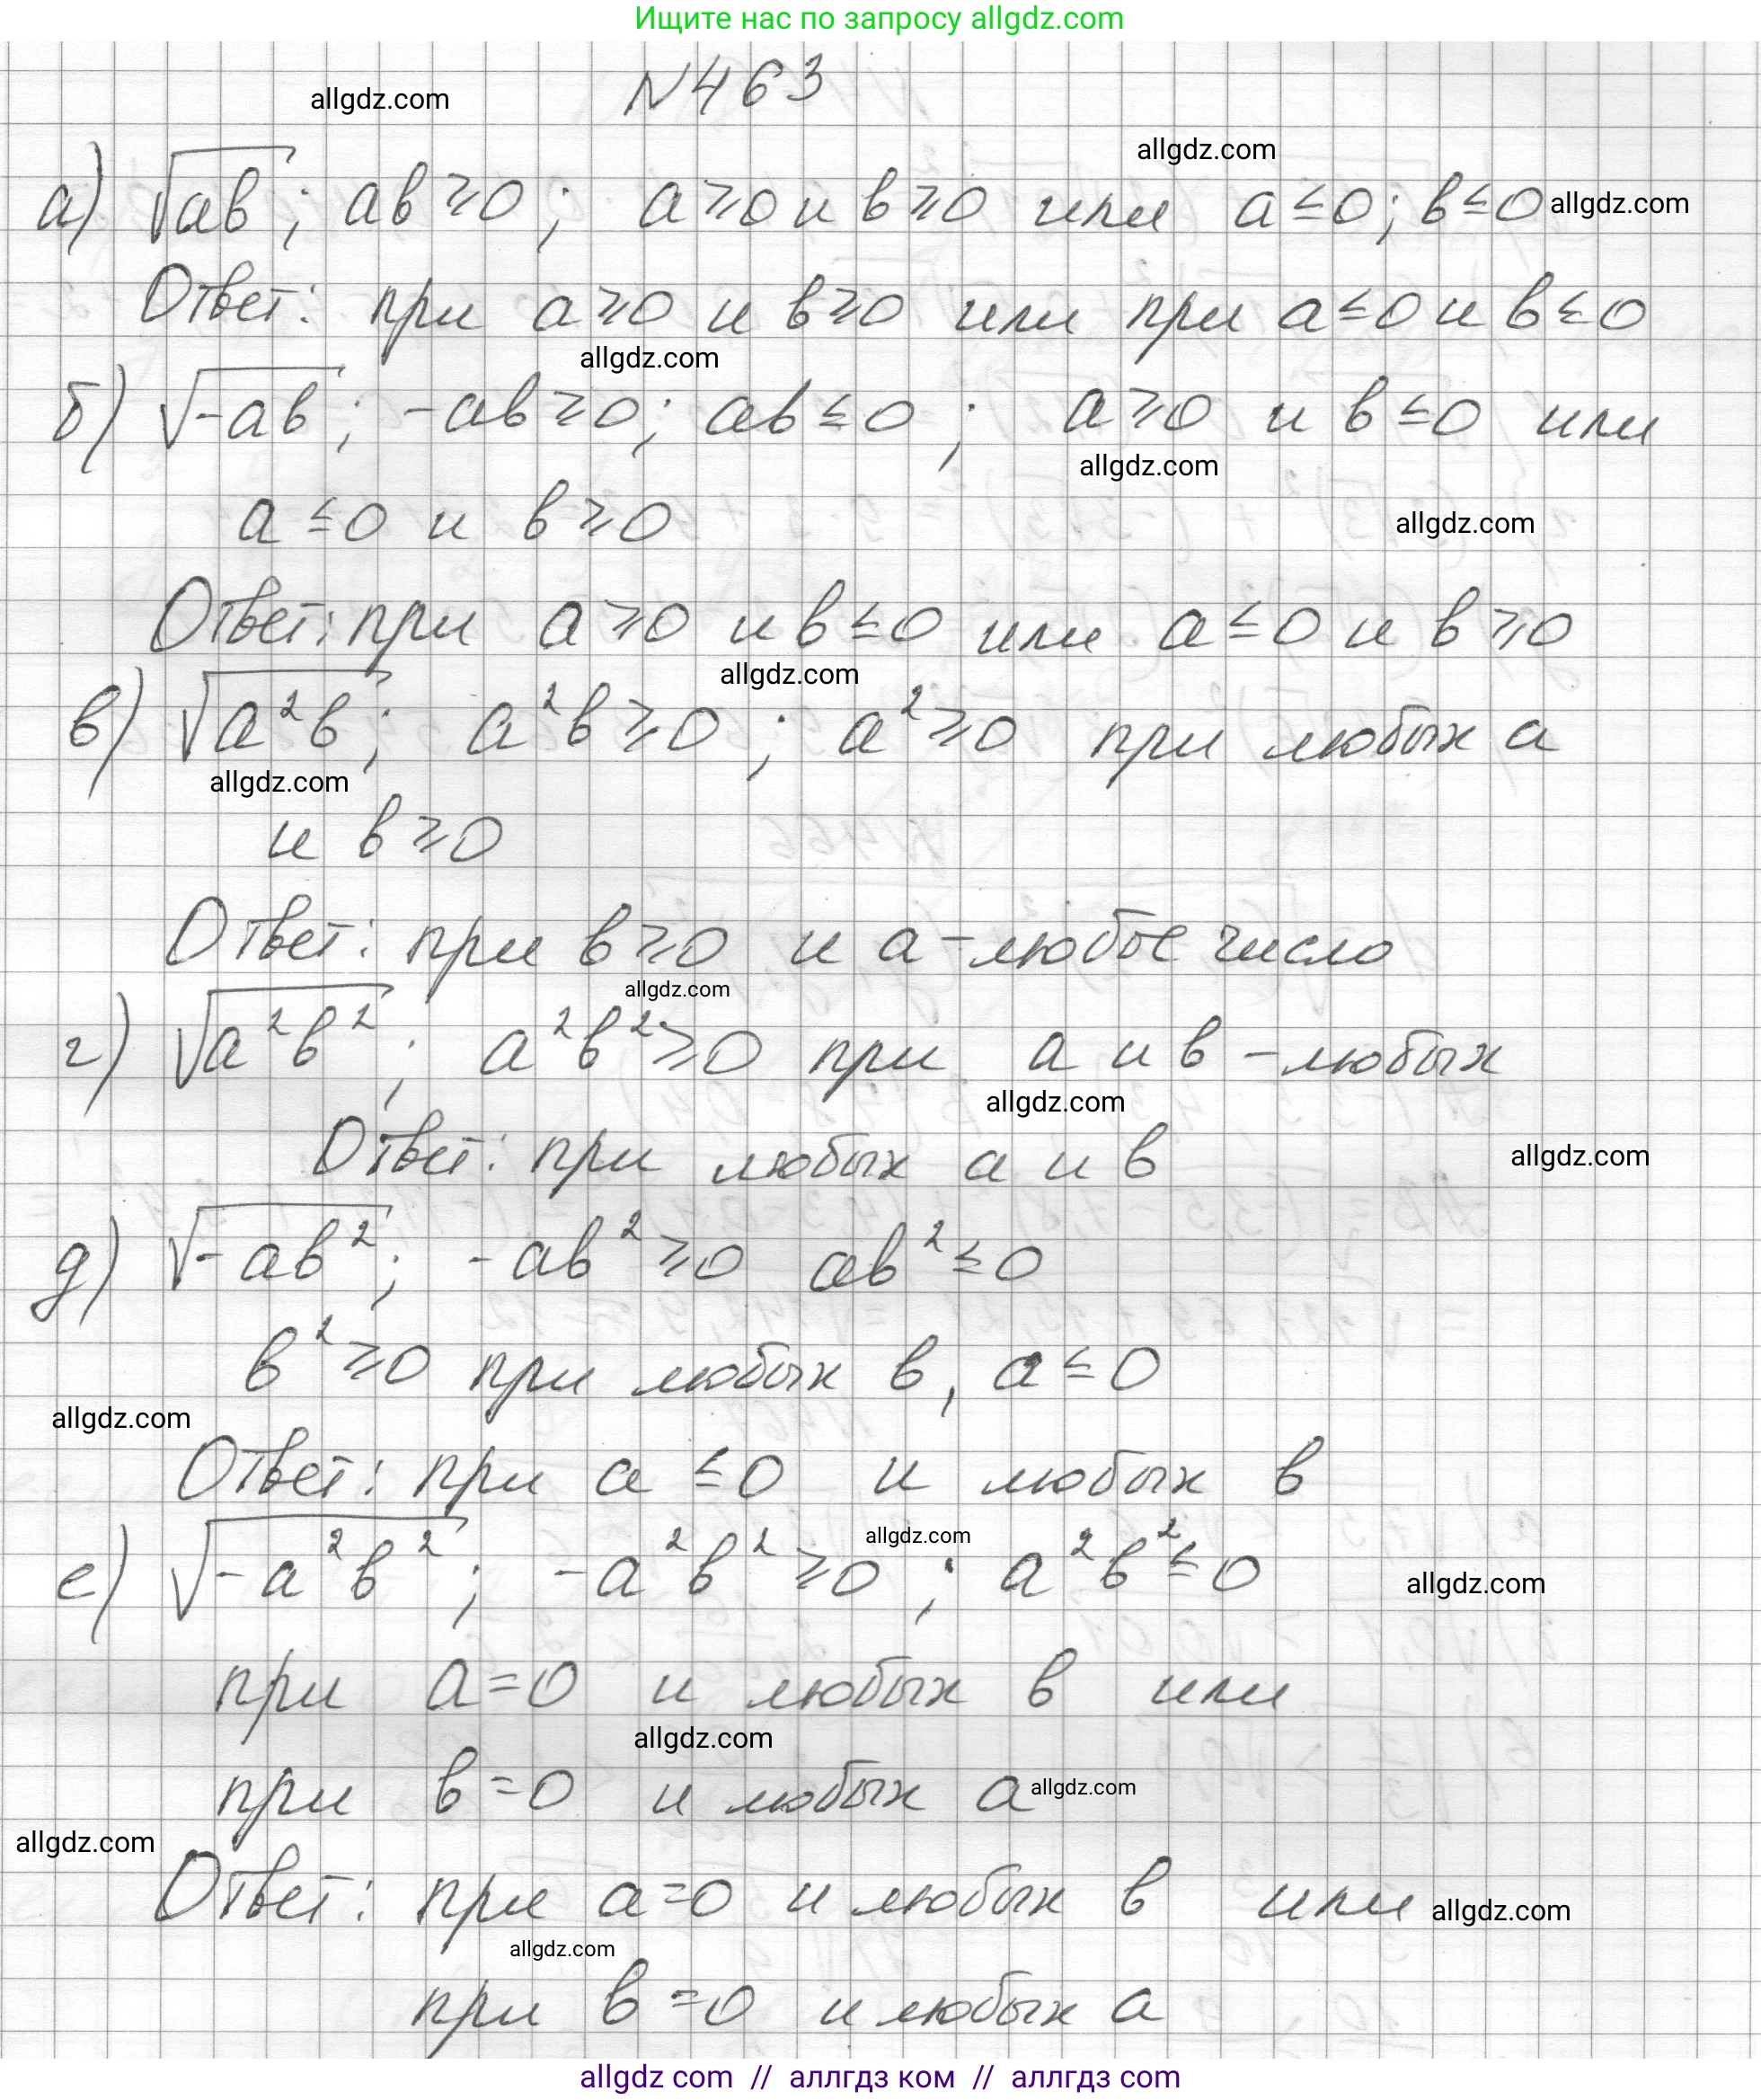 Ищите нас по запросу allgdz.com
N463
allgdz.com
allgdz.com
а) √ab; ab⩾0; a⩾0 и b⩾0 или a≤0; b≤0 allgdz.com
Ответ: при a⩾0 и b⩾0 или при a≤0 и b≤0
allgdz.com
б) √-ab; -ab⩾0; ab≤0; a⩾0 и b≤0 или
allgdz.com
a≤0 и b⩾0
allgdz.com
Ответ: при a⩾0 и b≤0 или a≤0 и b⩾0
allgdz.com
в) √a²b; a²b⩾0; a²⩾0 при любых a
allgdz.com
и b⩾0
Ответ: при b⩾0 и a-любое число
allgdz.com
г) √a²b²; a²b²⩾0 при a и b-любых
allgdz.com
Ответ: при любых a и b
allgdz.com
д) √-ab²; -ab²⩾0 ab²≤0
b²⩾0 при любых b, a≤0
allgdz.com
Ответ: при a≤0 и любых b
allgdz.com
е) √-a²b²; -a²b²⩾0; a²b²≤0
allgdz.com
при a=0 и любых b или
allgdz.com
при b=0 и любых a allgdz.com
allgdz.com
Ответ: при a=0 и любых b или allgdz.com
allgdz.com
при b=0 и любых a
allgdz com // аллгдз ком // аллгдз com